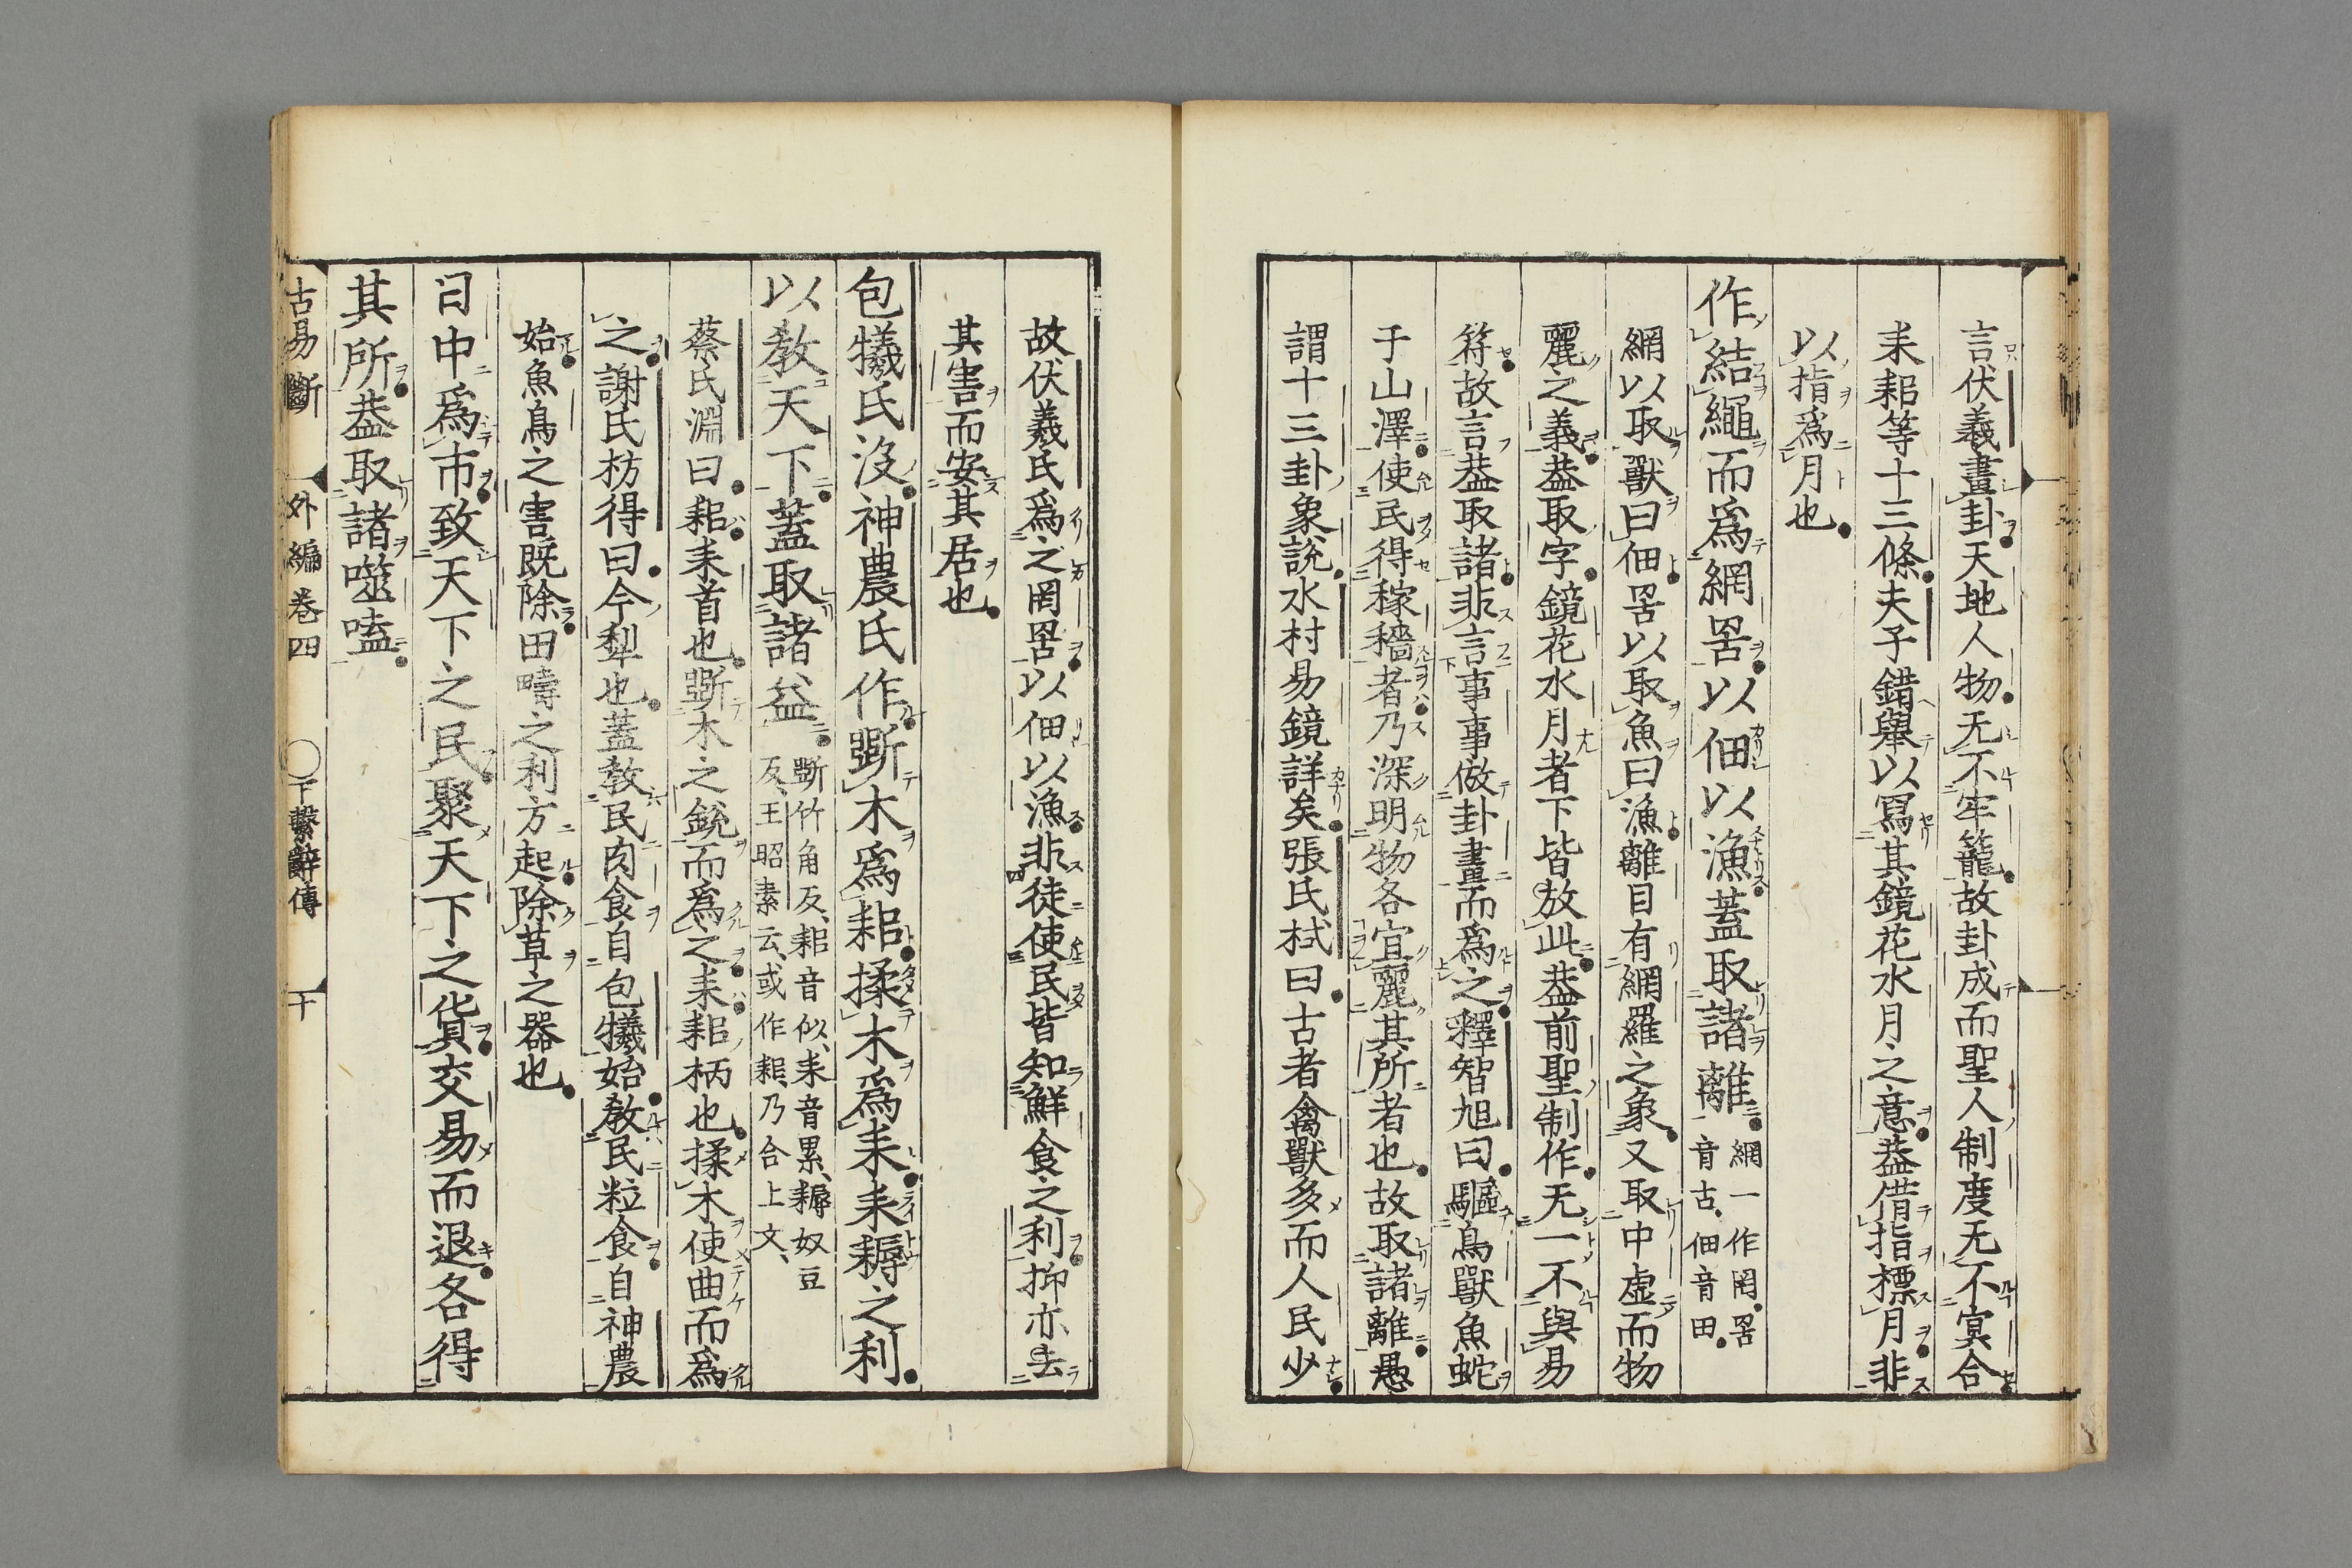 言伏羲畫卦天地人物无不牢籠故卦成而聖人制度无不冥合
耒耜等十三條夫子錯舉以寫其鏡花水月之意葢借指標月非
以指爲月也
作結繩而爲網罟以佃以漁蓋取諸離
網一作罔罟
音古佃音田
網以取獸曰佃罟以取魚曰漁離目有網羅之象又取中虛而物
麗之義葢取字鏡花水月者下皆放此葢前聖制作无一不與易
符故言葢取諸非言事事倣卦畫而爲之釋智旭曰驅鳥獸魚蛇
于山澤使民得稼穡者乃深明物各宜麗其所者也故取諸離愚
謂十三卦象說水村易鏡詳矣張氏栻曰古者禽獸多而人民少
故伏羲氏爲之罔罟以佃以漁非徒使民皆知鮮食之利抑亦去
其害而安其居也
包犧氏沒神農氏作斲木爲耜揉木爲耒耒耨之利
以教天下蓋取諸益
斲竹角反、耜音似、耒音累、耨奴豆
反、王昭素云、或作耜、乃合上文、
蔡氏淵曰耜耒首也斲木之銳而爲之耒耜柄也揉木使曲而爲
之謝氏枋得曰今犁也蓋教民肉食自包犧始教民粒食自神農
始魚鳥之害既除田疇之利方起除草之器也
日中爲市致天下之民聚天下之貨交易而退各得
其所葢取諸噬嗑
古易斷 外編卷四 ○下繫辭傳 十